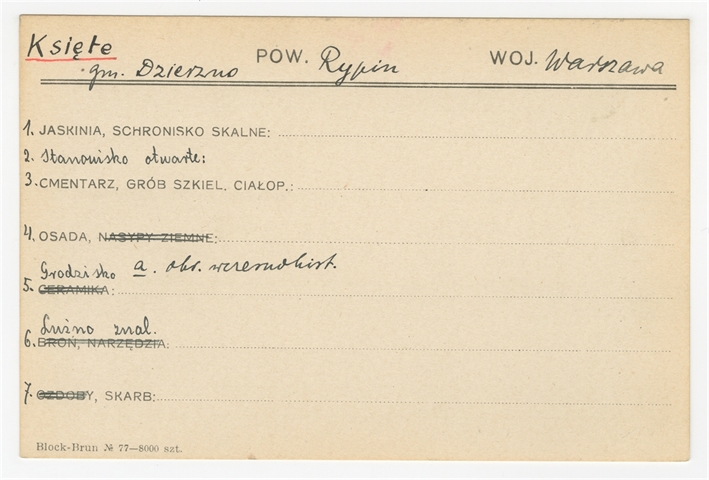 Księte POW. Rypin WOJ. Warszawa
gm. Dzierzno
1. JASKINIA, SCHRONISKO SKALNE:
2. Stanowisko otwarte:
3. CMENTARZ, GRÓB SZKIEL, CIAŁOP.:
4. OSADA, NASYPY ZIEMNE:
Grodzisko a. okr. wczesnohist.
5. CERAMIKA:
Luźno znal.
6. BROŃ, NARZĘDZIA:
7. OZDOBY, SKARB:
Block-Brun № 77—8000 szt.